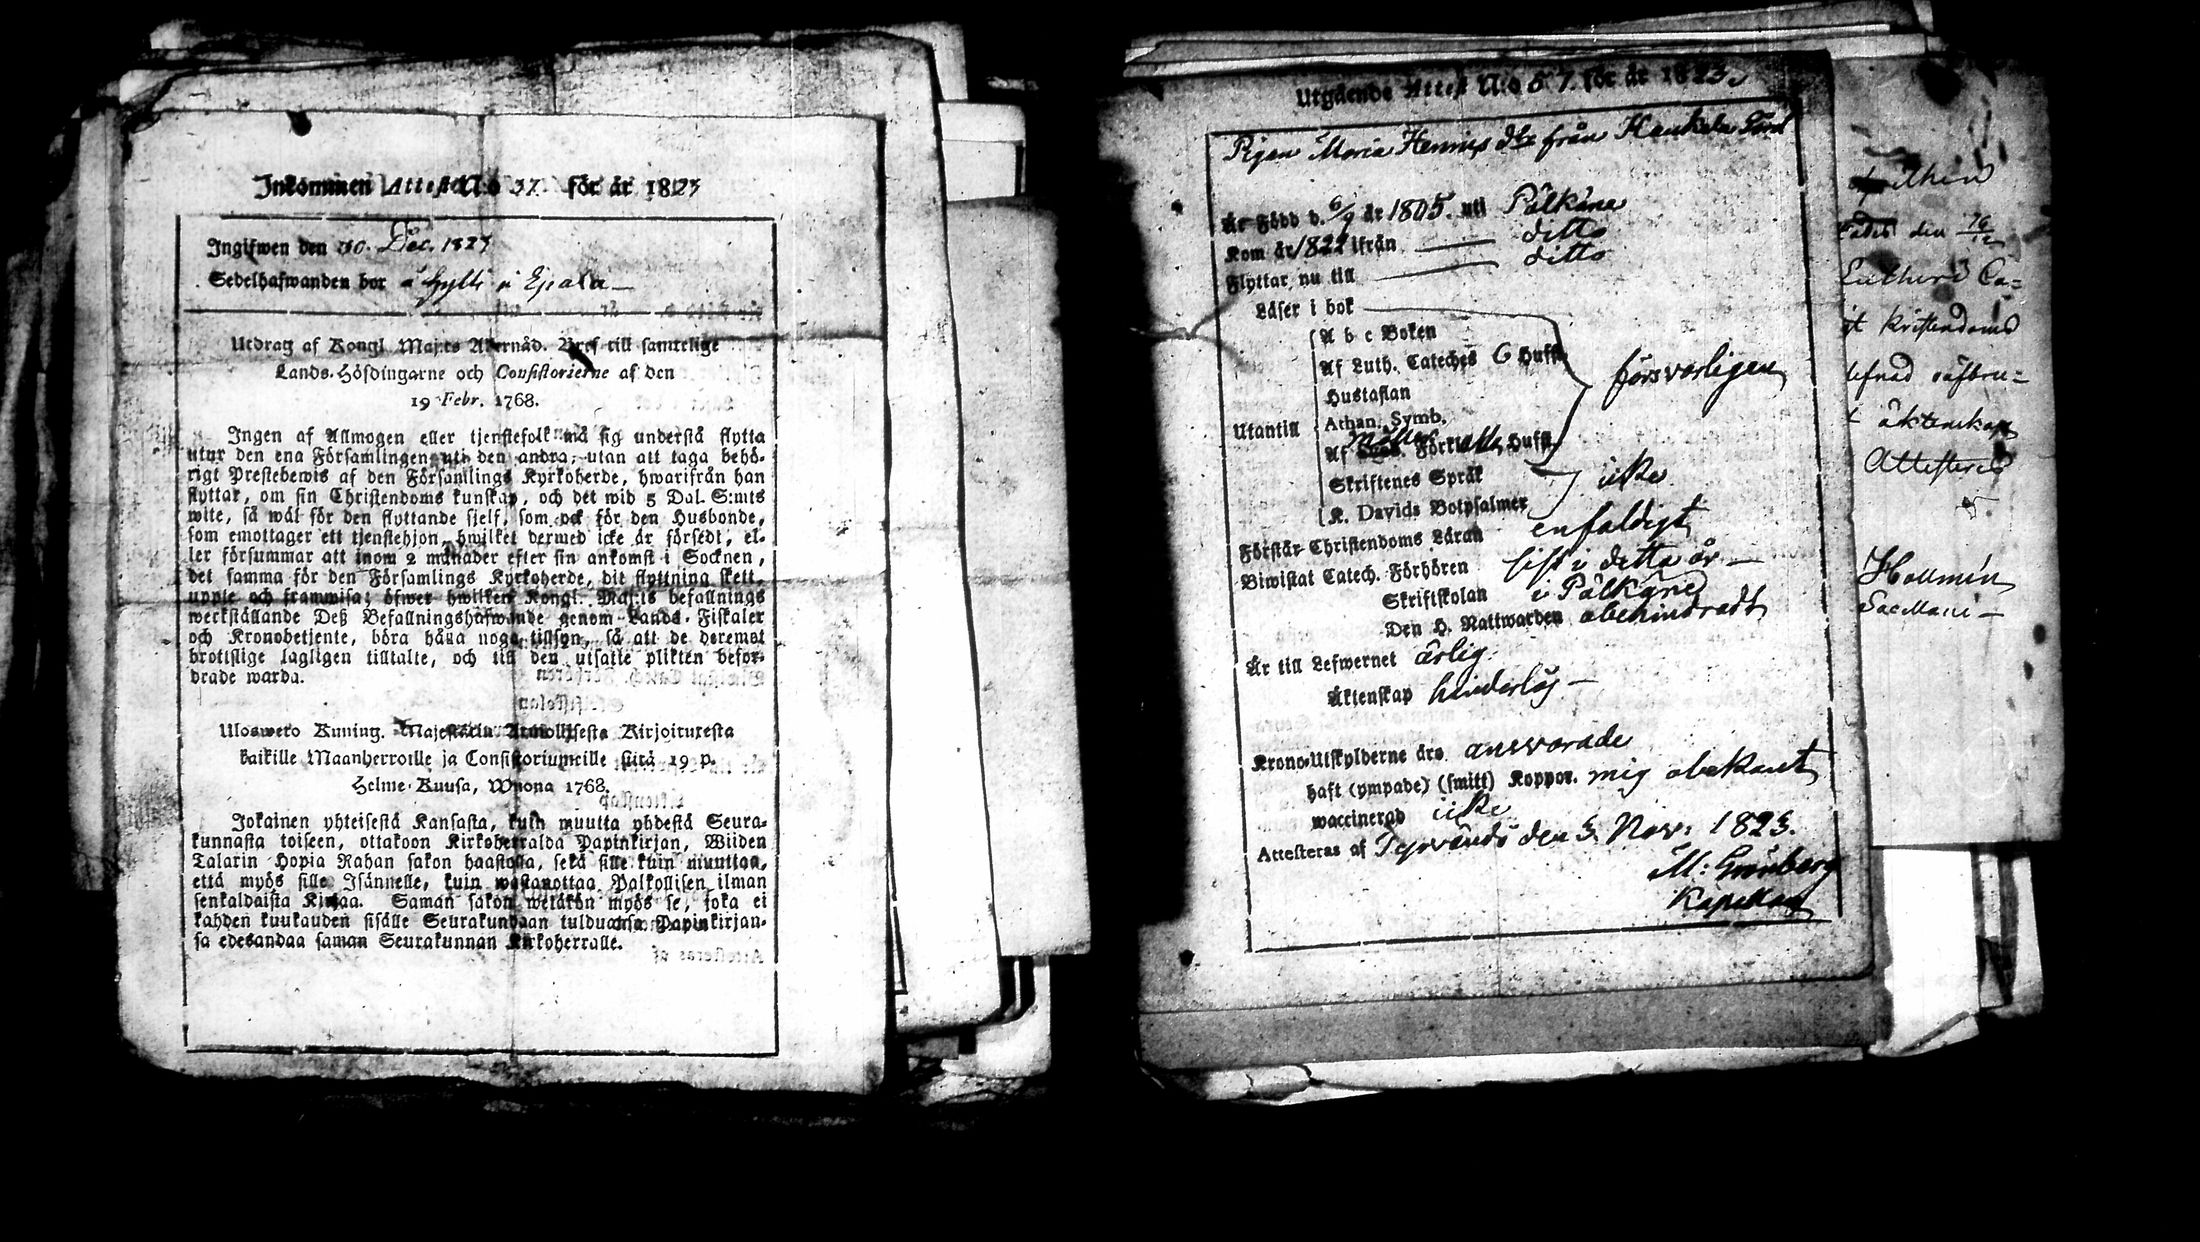 Inkommen Attest N:o 37. för år 1823
Ingifwen den 30. Dec. 1823
Sedelhafwanden bor
Utdrag af Kongl. Maj:ts Allernåd. Bref till samtelige
Lands-Höfdingarne och Consistorierne af den
19 Febr. 1768.
Ingen af Allmogen eller tjenstefolk må sig understå flytta
utur den ena Församlingen uti den andra, utan att taga behö-
rigt Prestebewis af den Församlings Kyrkoherde, hwarifrån han
flyttar, om sin Christendoms kunskap, och det wid 5 Dal. S:mts
wite, så wäl för den flyttande sjelf, som ock för den Husbonde,
som emottager ett tjenstehjon, hwilket dermed icke är försedt, el-
ler försummar att inom 2 månader efter sin ankomst i Socknen,
det samma för den Församlings Kyrkoherde, dit flyttning skett,
uppte och framwisa; öfwer hwilken Kongl. Maj:ts befallnings
werkställande Deß Befallningshafwande genom Lands-Fiskaler
och Kronobetjente, böra hålla noga tillsyn, så att de deremot
brottslige lagligen tilltalte, och till den utsatte plikten befor-
drade warda.
Ulosweto Kuning. Majestetin Armollisesta Kirjoituxesta
kaikille Maanherroille ja Consistoriumeille siitä 19 p.
Helme-Kuusa, Wuona 1768.
Jokainen yhteisestä Kansasta, kuin muutta yhdestä Seura-
kunnasta toiseen, ottakoon Kirkoherralda Papinkirjan, Wiiden
Talarin Hopia Rahan sakon haastolla, sekä sille kuin muuttaa,
että myös sille Isännelle, kuin wastanottaa Palkollisen ilman
senkaldaista Kirjaa. Saman sakon wetäkön myös se, joka ei
kahden kuukauden sisälle Seurakundaan tulduansa Papinkirjan-
sa edesandaa saman Seurakunnan Kirkoherralle.
Utgående Attest N:o 57. för år 1823.
Pigan Maria Henrics d:r från Haukela
Är Född d. 6/9 år 1805. uti Pälkäne
Kom år 1822 ifrån ditto
Flyttar nu till ditto
Läser i bok
A b c Boken
Af Luth. Cateches 6 Hufst.
försvarligen
Hustaflan
Utantill
Athan. Symb.
Af Förkl. alla Hufst.
Skriftenes Språk
icke
K. Davids Botpsalmer
Förstår Christendoms Läran enfaldigt
Biwistat Catech. Förhören sist i detta år
Skriftskolan i Pälkäne
Den H. Nattwarden obehindradt
Är till Lefwernet ärlig
Äktenskap hinderlös
Krono-Utskylderne äro answarade
haft (ympade) (smitt) Koppor. mig obekant
waccinerad icke
Attesteras af Tyrvändö den 3 Nov: 1823.
M: Grönberg
Kapellan
den 26/12
Lutheri Ca=
kristendoms
äktenskap
Attesteras
Hollmén
Sacellani